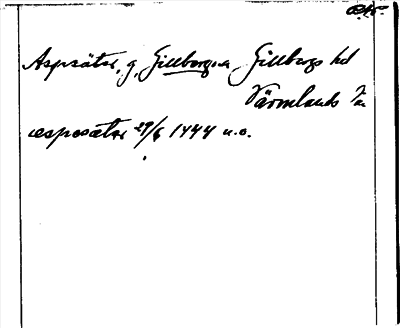 Aspsäter, g, Gillberga sn Gillbergs hd
Värmlands l.
æspesæter 29/6 1444 u.o.